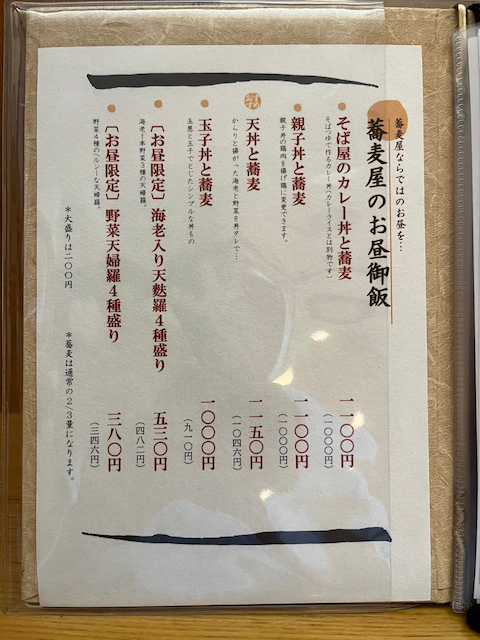 蕎麦屋ならではのお昼を…
蕎麦屋のお昼御飯
そば屋のカレー丼と蕎麦 一一〇〇円
そばつゆで作るカレー丼（カレーライスとは別物です） （一〇〇〇円）
親子丼と蕎麦 一一〇〇円
親子丼の鶏肉を揚げ鶏に変更できます。 （一〇〇〇円）
天丼と蕎麦 一一五〇円
からりと揚がった海老と野菜を丼タレで… （一〇四六円）
玉子丼と蕎麦 一〇〇〇円
玉葱と玉子でとじたシンプルな丼もの （九一〇円）
［お昼限定］海老入り天麩羅４種盛り 五三〇円
海老１本野菜３種の天婦羅。 （四八二円）
［お昼限定］野菜天婦羅４種盛り 三八〇円
野菜４種のヘルシーな天婦羅。 （三四六円）
＊大盛りは二〇〇円
＊蕎麦は通常の２/３量になります。